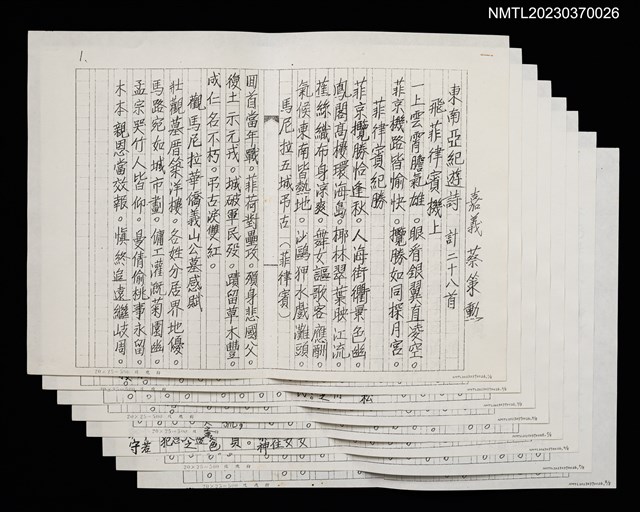 NMTL20230370026
1、
東南亞紀遊詩 計二十八首
嘉義 蔡策勳
飛菲律賓機上
一上雲霄膽氣雄。眼看銀翼直凌空。
菲京機路皆愉快。攬勝如同探月宮。
菲律賓紀勝
菲京攬勝恰逢秋。人海街衢景色幽。
閣高樓環海島。椰林翠葉映江流。
蕉絲織布身涼爽。舞女謳歌客應酬。
氣候東南皆熱地。沙鷗狎水戲灘頭。
馬尼拉五城弔古（菲律賓）
回首當年戰。菲荷對壘攻。殞身悲國父。
復土一示元戎。城破軍民殁。蹟留草木豐。
成仁名不朽。弔古淚雙紅。
觀馬尼拉華僑義山公墓感賦
壯觀墓厝築洋樓。各姓分居界地優。
馬路宛如城市畫。傭工灌蔬菊園幽
孟宗哭竹人皆仰。曼倩偷桃事永留。
木本親恩當效報。慎終追遠繼岐周。
松
守若